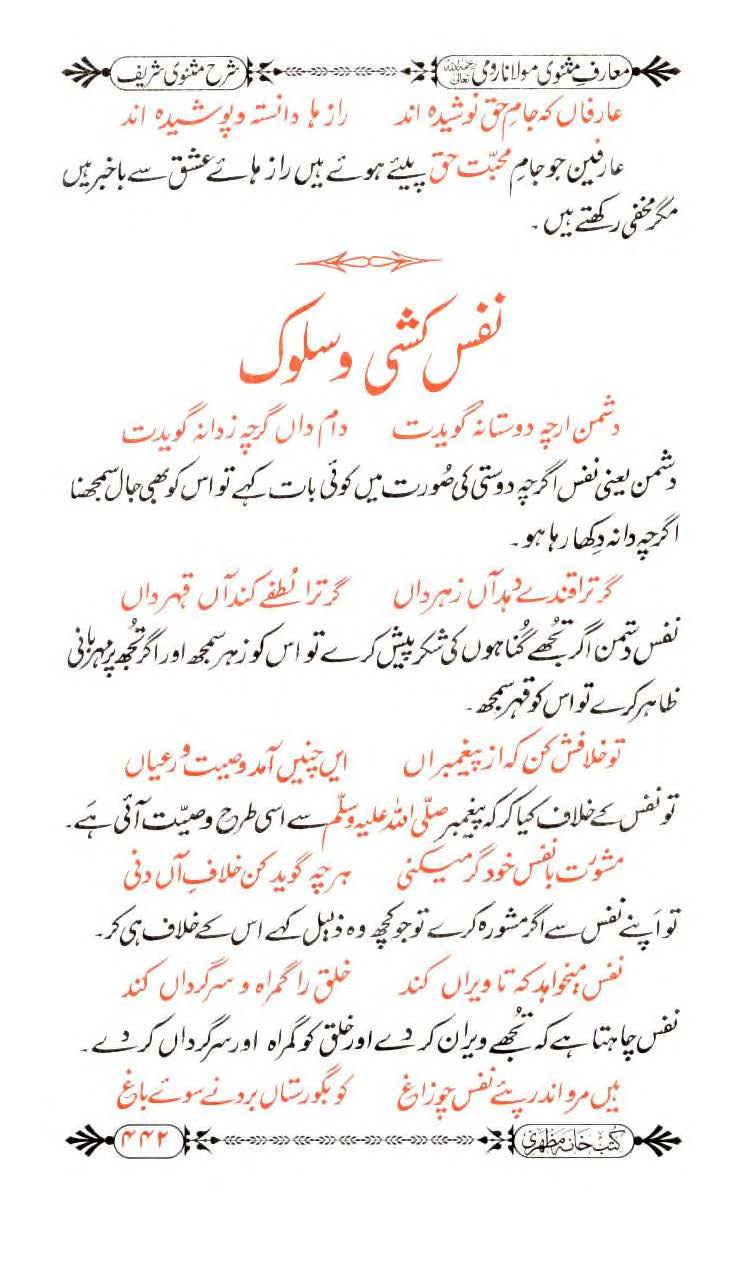 معارفِ مثنوی مولانا رومی رحمۃ اللہ تعالیٰ
شرح مثنوی شریف
عارفاں کہ جامِ حق نوشیدہ اند راز ہا دانستہ و پوشیدہ اند
عارفین جو جامِ محبّت حق پیئے ہوئے ہیں راز ہائے عشق سے باخبر ہیں
مگر مخفی رکھتے ہیں ۔
نفس کشی و سلوک
دشمن ارچہ دوستانہ گویدت دام داں گرچہ ز دانہ گویدت
دشمن یعنی نفس اگرچہ دوستی کی صُورت میں کوئی بات کہے تو اس کو بھی جال سمجھنا
اگرچہ دانہ دِکھا رہا ہو ۔
گر ترا قندے دہد آں زہر داں گر ترا لُطفے کند آں قہر داں
نفس دشمن اگر تجھے گُناہوں کی شکر پیش کرے تو اس کو زہر سمجھ اور اگر تُجھ پر مہربانی
ظاہر کرے تو اس کو قہر سمجھ ۔
تو خلافش کن کہ از پیغمبراں ایں چنیں آمد وصیت در عیاں
تو نفس کے خلاف کیا کر کہ پیغمبر صلّی اللہ علیہ وسلّم سے اسی طرح وصیّت آئی ہے۔
مشورت با نفس خود گر میکنی ہر چہ گوید کن خلافِ آں دنی
تو اَپنے نفس سے اگر مشورہ کرے تو جو کچھ وہ ذلیل کہے اس کے خلاف ہی کر۔
نفس میخواہد کہ تا ویراں کند خلق را گمراہ و سرگرداں کند
نفس چاہتا ہے کہ تُجھے ویران کر دے اور خلق کو گمراہ اور سرگرداں کر دے ۔
ہیں مرو اندر پئے نفس چو زاغ کو بگورستاں برد نے سوئے باغ
کتب خانہ مظہری
۴۴۲